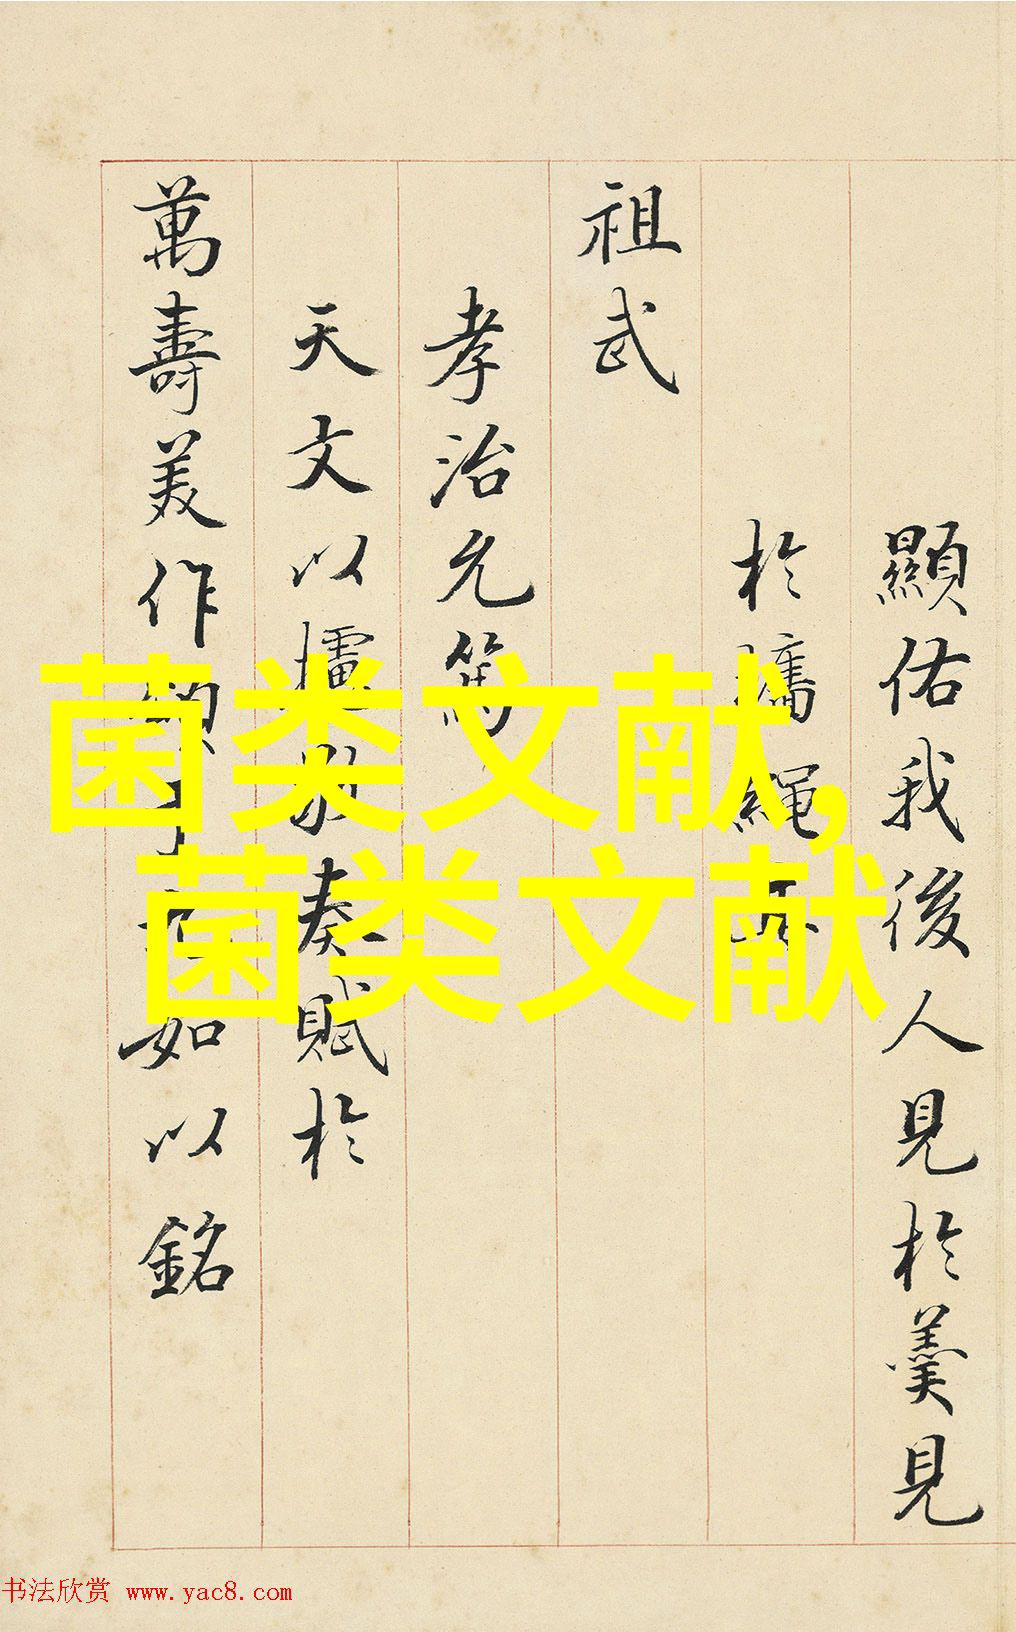 顯佑我後人見於羹見
於繩
祖武
孝治允篤
天文以奏賦於
萬壽美作如以銘
菌类文献,
菌类文献
书法欣赏 www.yac8.com